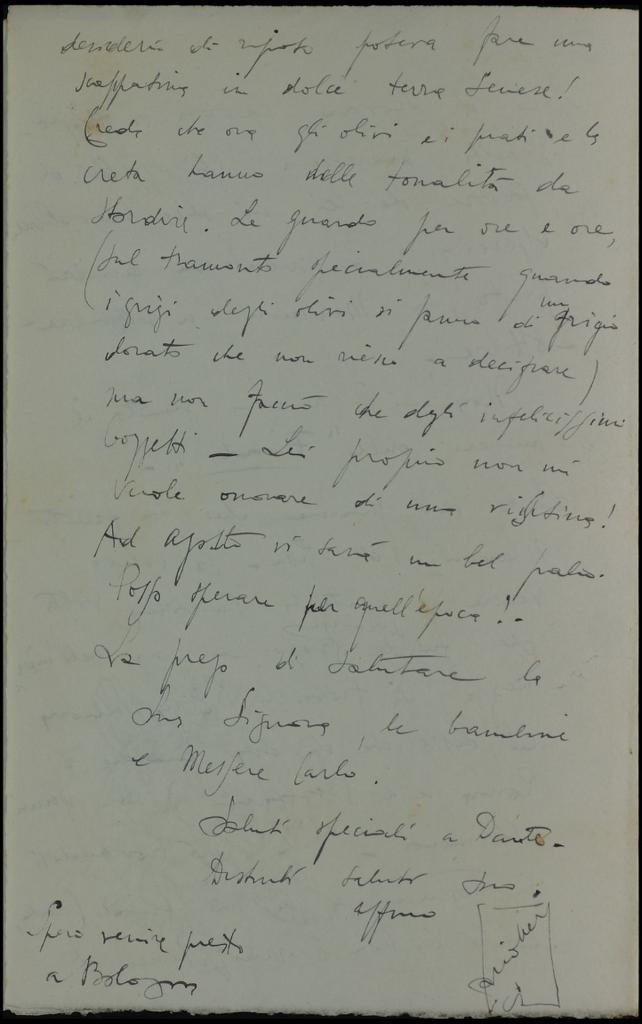 desideri di riposo poteva fare una
scappatina in dolce terra Senese!
Creda che ora gli olivi e i prati e la
creta hanno delle tonalità da
stordire. Le guardo per ore e ore,
(sul tramonto specialmente quando
i grigi degli olivi si fanno di un grigio
dorato che non riesco a decifrare)
ma non faccio che degli infelicissimi
bozzetti – Lei proprio non mi
vuole onorare di una visitina!
Ad agosto vi sarà un bel palio.
Posso sperare per quell'epoca!-
La prego di salutare la
Sua Signora, le bambine
e Messere Carlo.
Saluti speciali a Dante-
Distinti saluti suo
affmo
Spero venire presto
a Bologna